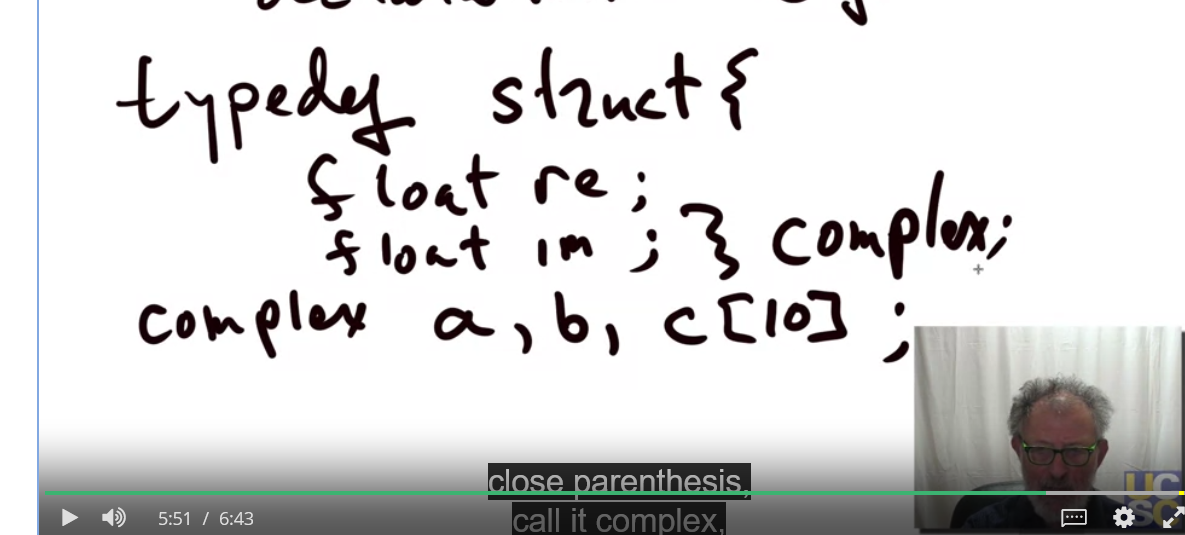 typedef struct{
float re;
float im; } complex;
complex a, b, c[10];
close parenthesis,
call it complex,
5:51 / 6:43
UC
SC